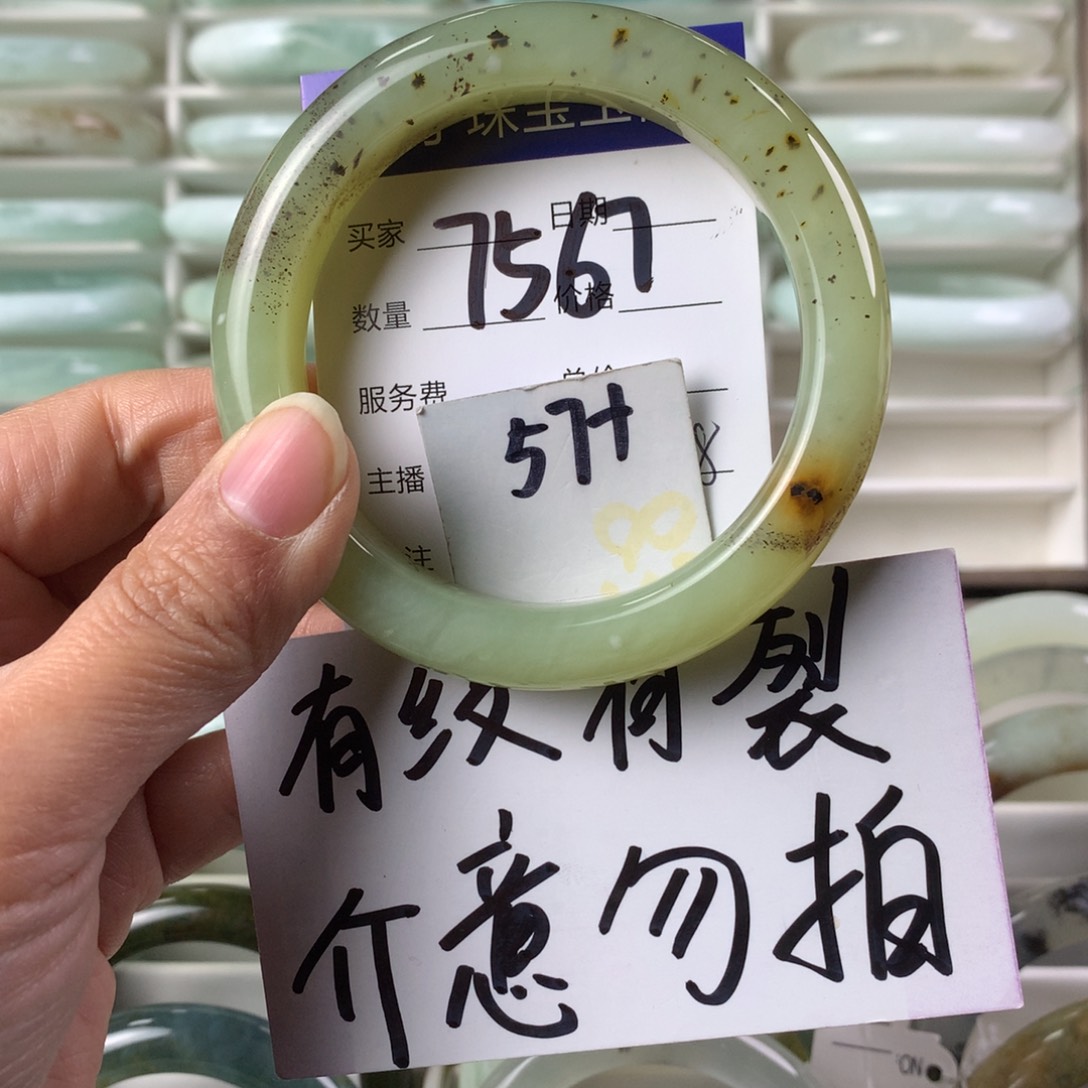 珠宝玉
买家 日期
7567
数量 价格
服务费 单价
57H
主播 8
注
有纹有裂
介意勿拍
NO